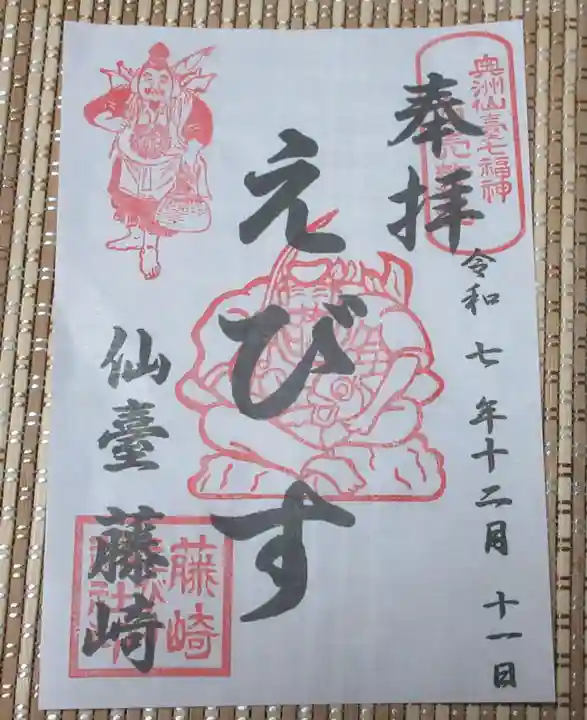 奥洲仙臺七福神
奉拝
令和七年十二月十一日
えびす
仙臺藤崎
藤崎